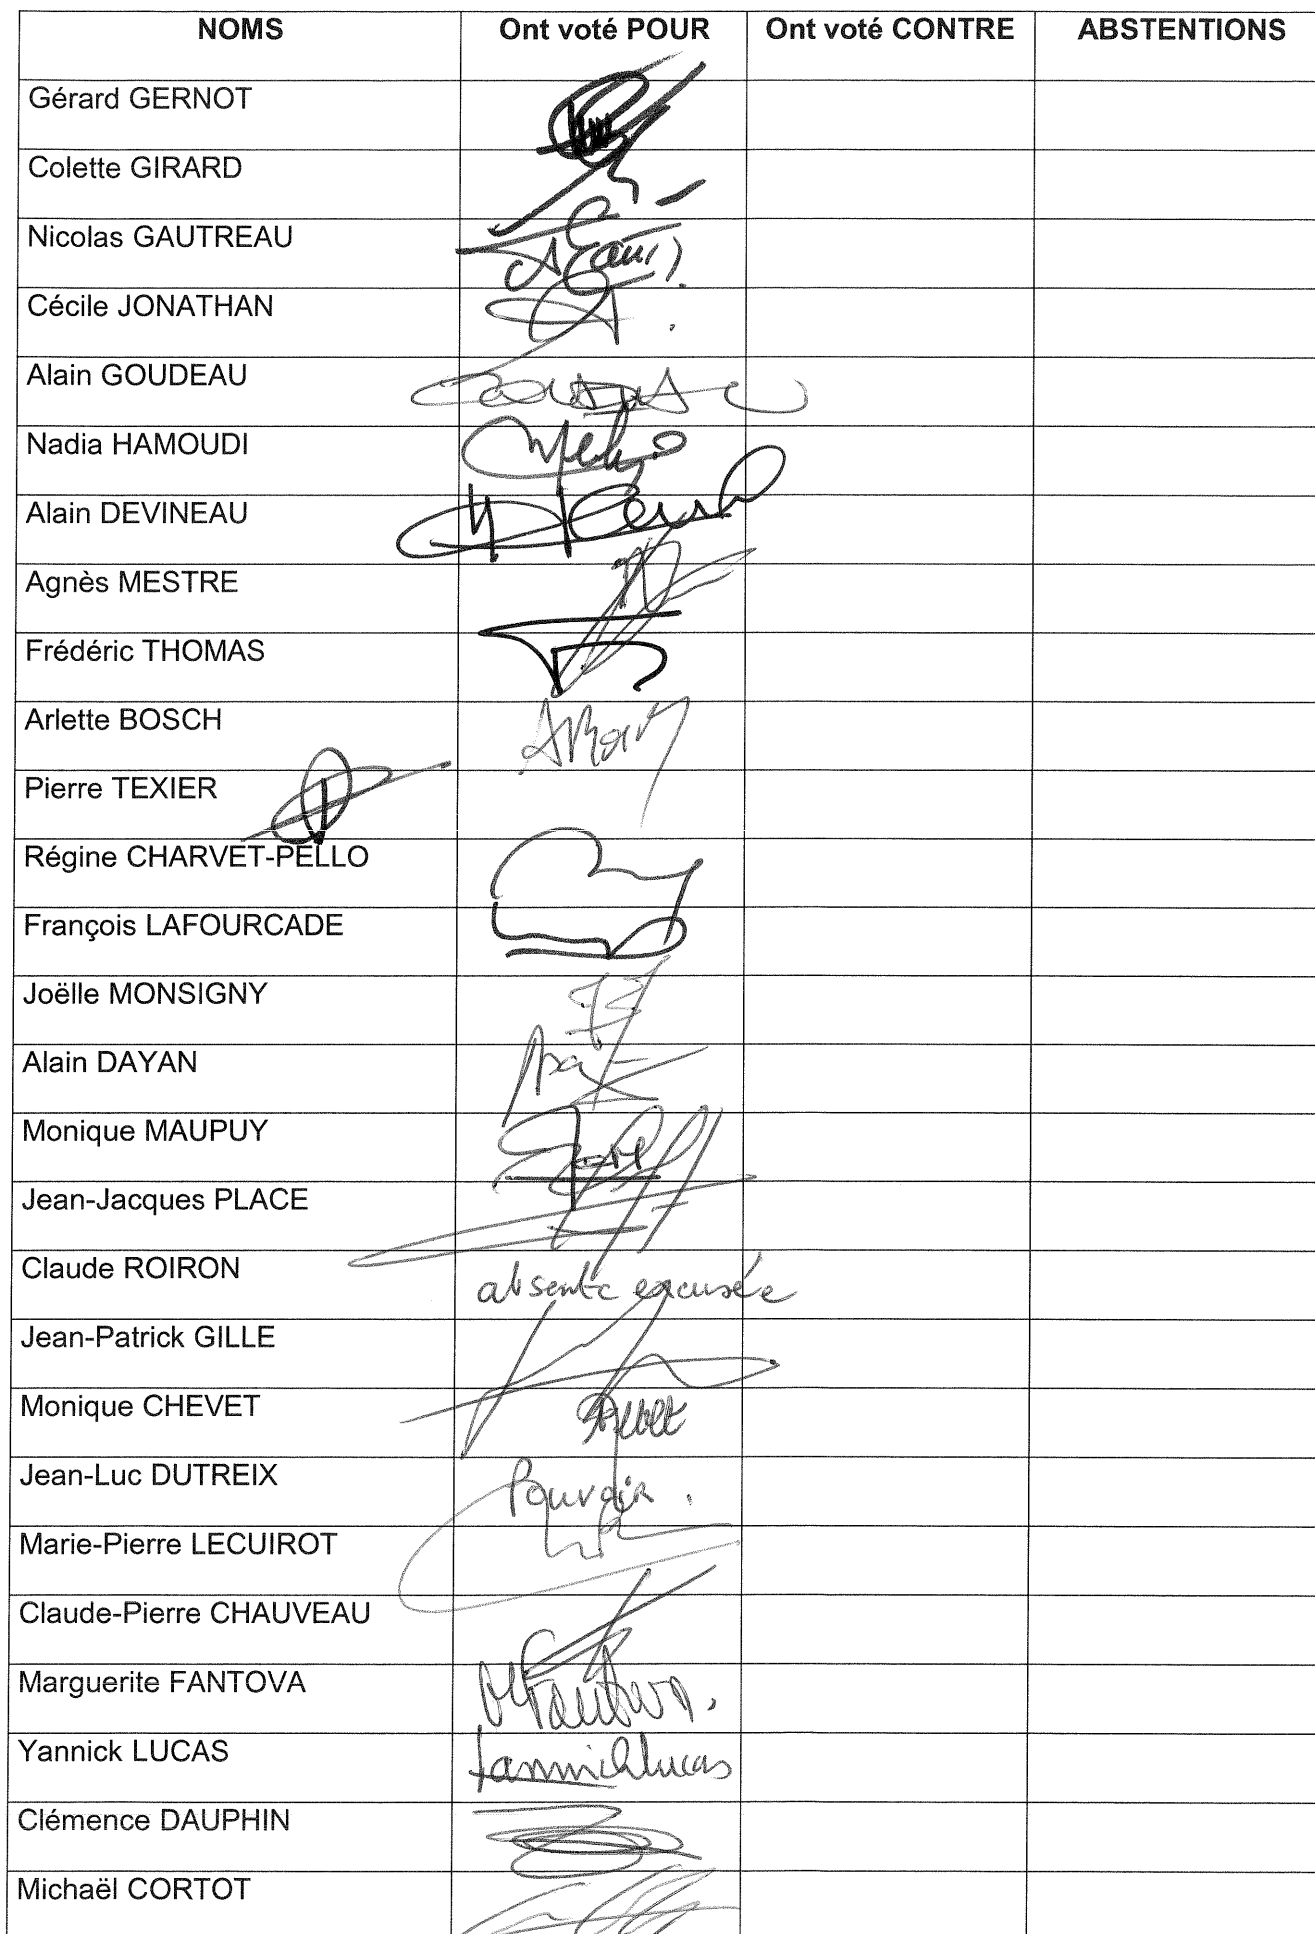 NOMS Ont voté POUR Ont voté CONTRE ABSTENTIONS
Gérard GERNOT
Colette GIRARD
Nicolas GAUTREAU
Cécile JONATHAN
Alain GOUDEAU
Nadia HAMOUDI
Alain DEVINEAU
Agnès MESTRE
Frédéric THOMAS
Arlette BOSCH
Pierre TEXIER
Régine CHARVET-PELLO
François LAFOURCADE
Joëlle MONSIGNY
Alain DAYAN
Monique MAUPUY
Jean-Jacques PLACE
Claude ROIRON absente excusée
Jean-Patrick GILLE
Monique CHEVET
Jean-Luc DUTREIX Pouvoir.
Marie-Pierre LECUIROT
Claude-Pierre CHAUVEAU
Marguerite FANTOVA MFantova.
Yannick LUCAS Yannick Lucas
Clémence DAUPHIN
Michaël CORTOT